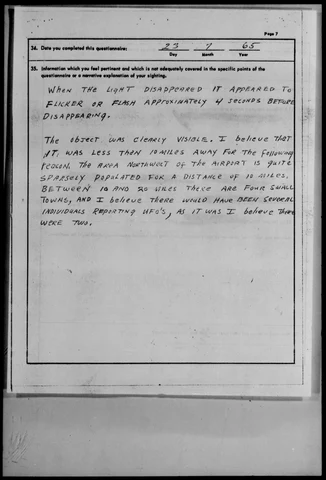 Page 7
34. Date you completed this questionnaire: 23 7 65
Day Month Year
35. Information which you feel pertinent and which is not adequately covered in the specific points of the
questionnaire or a narrative explanation of your sighting.
WHEN THE LIGHT DISAPPEARED IT APPEARED TO
FLICKER OR FLASH APPROXIMATELY 4 SECONDS BEFORE
DISAPPEARING.
THE OBJECT WAS CLEARLY VISIBLE. I BELIEVE THAT
IT WAS LESS THEN 10 MILES AWAY FOR THE FOLLOWING
REASON. THE AREA NORTHWEST OF THE AIRPORT IS QUITE
SPARSELY POPULATED FOR A DISTANCE OF 10 MILES.
BETWEEN 10 AND 20 MILES THERE ARE FOUR SMALL
TOWNS, AND I BELIEVE THERE WOULD HAVE BEEN SEVERAL
INDIVIDUALS REPORTING UFO'S, AS IT WAS I BELIEVE THERE
WERE TWO.